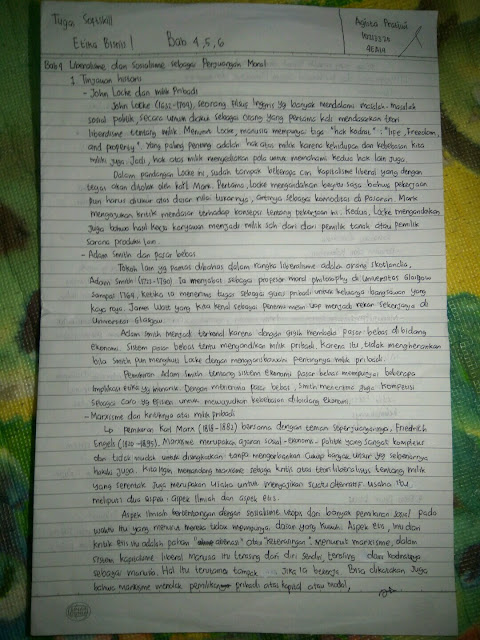 Tugas Softskill
Etika Bisnis Bab 4,5,6
Agista Pratiwi
4EA14
Bab 4 Liberalisme dan Sosialisme sebagai Perjuangan Moral
1. Tinjauan historis
- John Locke dan milik Pribadi
John Locke (1632-1704), seorang filsuf Inggris yg banyak mendalami masalah-masalah
sosial politik, secara umum diakui sebagai orang yang pertama kali mendasarkan teori
liberalisme tentang milik. Menurut Locke, manusia mempunyai tiga "hak kodrat": "life, Freedom,
and property". Yang paling penting adalah hak atas milik karena kehidupan dan kebebasan kita
miliki juga. Jadi, hak atas milik menyediakan pola untuk memahami kedua hak lain juga.
Dalam pandangan Locke ini, sudah tampak beberapa ciri kapitalisme liberal yang dengan
tegas akan ditolak oleh Karl Marx. Pertama, Locke mengandaikan begitu saja bahwa pekerjaan
pun harus diukur atas dasar nilai tukarnya, artinya sebagai komoditas di pasaran. Marx
mengajukan kritik mendasar terhadap konsepsi tentang pekerjaan ini. Kedua, Locke mengandaikan
juga bahwa hasil kerja karyawan menjadi milik sah dari dari pemilik tanah atau pemilik
sarana produksi lain.
- Adam Smith dan pasar bebas
Tokoh lain yg pantas dibahas dalam rangka liberalisme adalah orang Skotlandia,
Adam Smith (1723-1790). Ia menjabat sebagai profesor moral philosophy di Universitas Glasgow
sampai 1764, ketika ia menerima tugas sebagai guru pribadi untuk keluarga bangsawan yang
kaya raya. James Watt yang kita kenal sebagai penemu mesin uap menjadi rekan sekerjanya di
Universitas Glasgow.
Adam Smith menjadi terkenal karena dengan gigih membela pasar bebas di bidang
ekonomi. Sistem pasar bebas tentu mengandaikan milik pribadi. Karena itu, tidak mengherankan
bila Smith pun mengikuti Locke dengan menggarisbawahi pentingnya milik pribadi.
Pemikiran Adam Smith tentang sistem ekonomi pasar bebas mempunyai beberapa
implikasi etika yg menarik. Dengan menerima pasar bebas, Smith menerima juga kompetisi
sebagai cara yg efisien untuk mewujudkan kebebasan dibidang ekonomi.
- Marxisme dan kritiknya atas milik pribadi
Pemikiran Karl Marx (1818-1883) bersama dengan teman seperjuangannya, Friedrich
Engels (1820-1895). Marxisme merupakan ajaran sosial-ekonomi-politik yang sangat kompleks
dan tidak mudah untuk disingkatkan tanpa mengorbankan cukup banyak unsur yg sebenarnya
hakiki juga. Kita ingin memandang marxisme sebagai kritik atas teori liberalisme tentang milik
yang serentak juga merupakan usaha untuk menyajikan suatu alternatif. usaha itu
meliputi dua aspek: aspek ilmiah dan aspek etis.
Aspek ilmiah bertentangan dengan sosialisme utopis dan banyak pemikiran sosial pada
waktu itu yang menurut mereka tidak mempunyai dasar yang kukuh. Aspek etis, inti dari
kritik etis itu adalah paham "alienasi" atau "keterasingan". menurut marxisme, dalam
sistem kapitalisme liberal manusia itu terasing dari diri sendiri, terasing dari kodratnya
sebagai manusia. Hal itu terutama tampak jika ia bekerja. Bisa dikatakan juga
bahwa marxisme menolak pemilikan pribadi atas kapital atau modal,